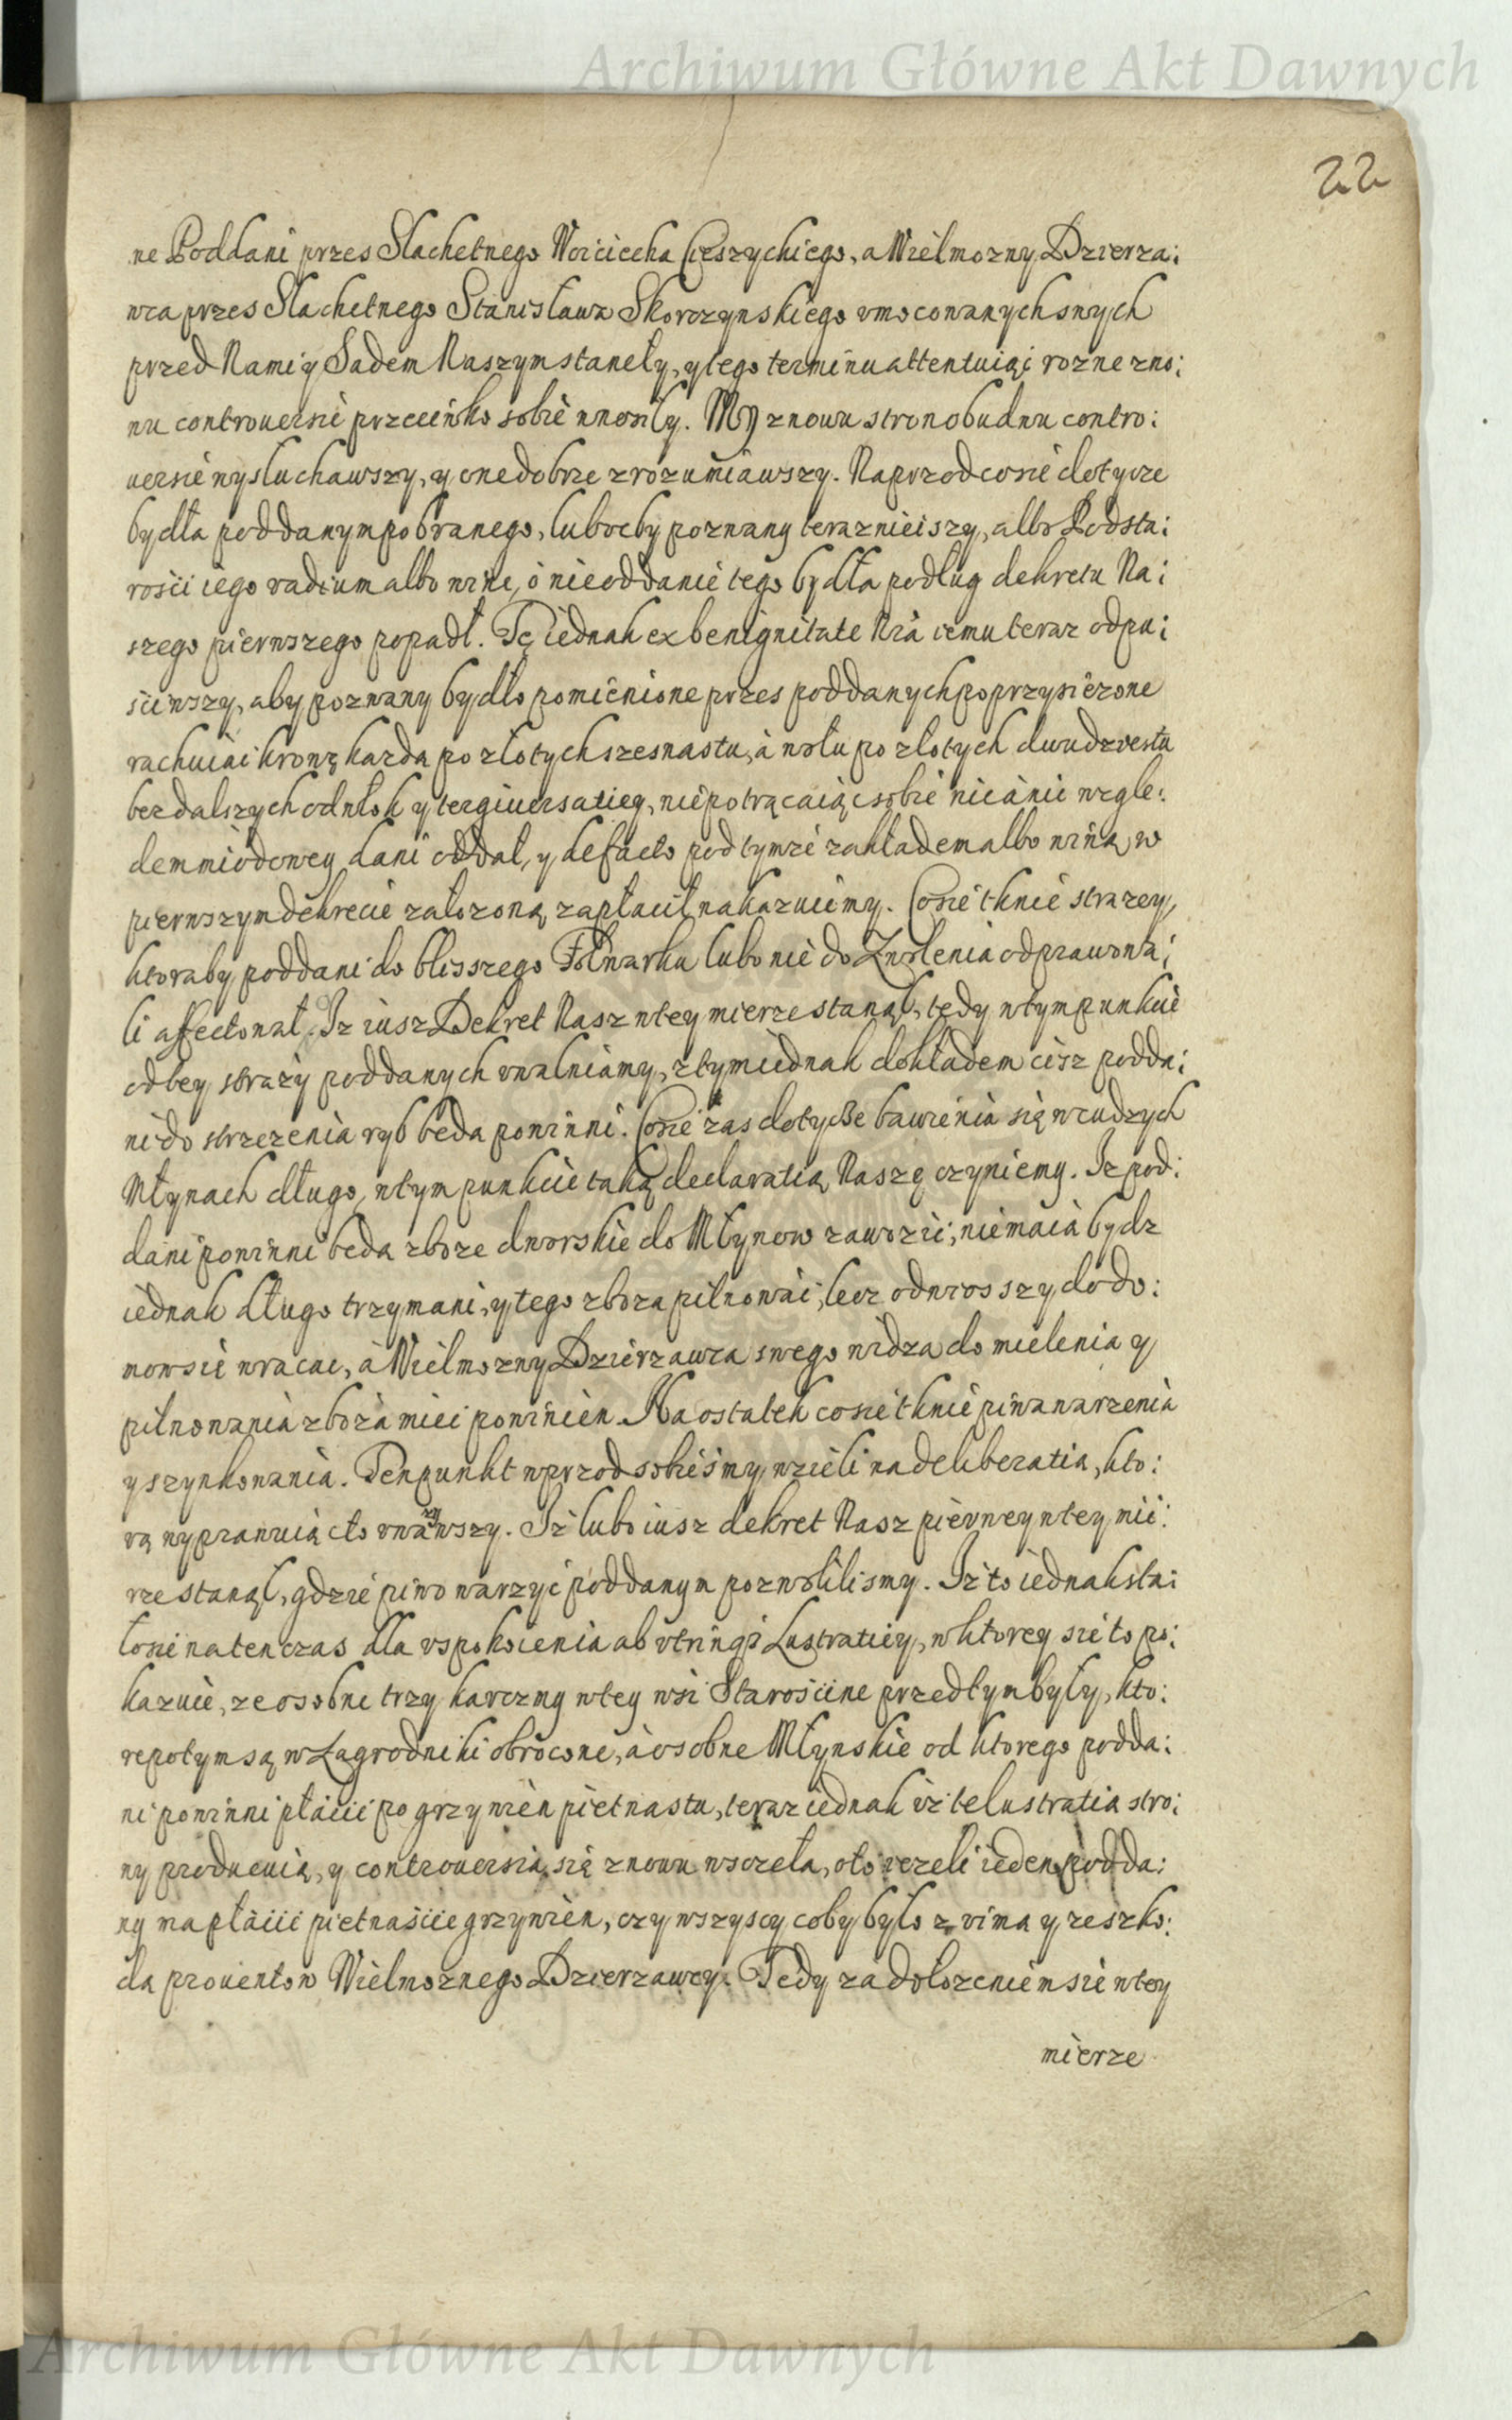 Archiwum Główne Akt Dawnych
22
ne Poddani przes Slachetnego Woiciecha Cieszyckiego, a Wielmozny Dzierza:
wca przes Slachetnego Stanisława Skorczynskiego vmoconanych swych
przed Nami y Sadem Naszym staneły, y tego terminu attentuiąc rozne zno:
wu controuersie przeciwko sobie wnosiły. My znowu stron obudwu contro:
uersie wysłuchawszy, y one dobrze zrozumiawszy. Naprzod co sie dotycze
bydła poddanym pobranego, luboćby pozwany terazniejszy, albo Podsta:
rosci iego vadium albo wine, o nieoddanie tego bydła podług dekretu Na:
szego pierwszego popadł. Tę iednak ex benignitate Nrã iemu teraz odpu:
sciwszy, aby pozwany bydło pomienione przes poddanych poprzysiezone
rachuiąc krowę kazda po złotych szesnastu, à wołu po złotych dwudziestu
bez dalszych odwłok y tergiuersatiey, nie potrącaiąc sobie nic ànic wzgle:
dem miodowey dani oddał, y de facto pod tymze zakładem albo winą w
pierwszym dekrecie załozoną zapłacił nakazuiemy. Co sie tknie strazey,
ktoraby poddani do blisszego Folwarku lubo nie do Zwolenia odprawowa:
li affectował. Iz iusz Dekret Nasz wtey mierze stanął, tedy wtym punkcie
od tey strazy poddanych vwalniamy, ztym iednak dokładem cisz podda:
ni do strzezenia ryb beda powinni. Co sie zas dotycze bawienia się w cudzych
Młynach długo, wtym punkcie taką declaratią Naszę czyniemy. Iz pod:
dani powinni beda zboze dworskie do Młynow zawozic, nie maią bydz
iednak długo trzymani, y tego zboza pilnowac, lecz odwioszszy do do:
mow sie wracac, à Wielmozny Dzierzawca swego widza do mielenia y
pilnowania zboza miec powinien. Na ostatek co sie tknie piwa warzenia
y szynkowania. Ten punkt wprzod sobiesmy wzieli na deliberatia, kto:
rą wyprawuiąc to vwazywszy. Iz lubo iusz dekret Nasz pierwey wtey mie:
rze stanął, gdzie piwo warzyc poddanym pozwolilismy. Iz to iednak sta:
ło sie na ten czas dla vspokoienia ab vtrinqȝ Lustratiey, w ktorey sie to po:
kazuie, ze osobne trzy karczmy wtey wsi Staroscine przedtym były, kto:
re potym są w Zagrodniki obrocone, à osobne Młynskie od ktorego podda:
ni powinni płacic po grzywien pietnastu, teraz iednak iz te lustratia stro:
ny producuią, y controuersia się znowu wsczeła, oto iezeli ieden podda:
ny ma płacic pietnascie grzywien, czy wszyscy coby było z vima y ze szko:
da prouentow Wielmoznego Dzierzawcy. Tedy za dołozeniem sie wtey
mierze
Archiwum Główne Akt Dawnych